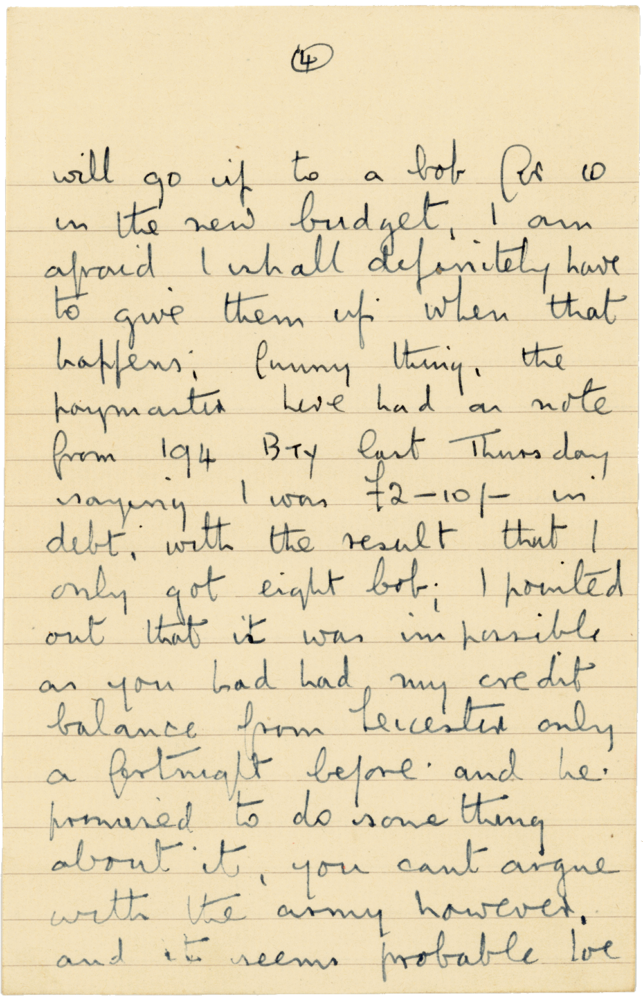 4
will go up to a bob for 10
in the new budget, I am
afraid I shall definitely have
to give them up when that
happens; funny thing, the
paymaster here had a note
from 194 BTY last Thursday
saying I was £2-10/- in
debt, with the result that I
only got eight bob; I pointed
out that it was impossible
as you had had my credit
balance from Leicester only
a fortnight before and he
promised to do something
about it, you cant argue
with the army however,
and it seems probable Ive